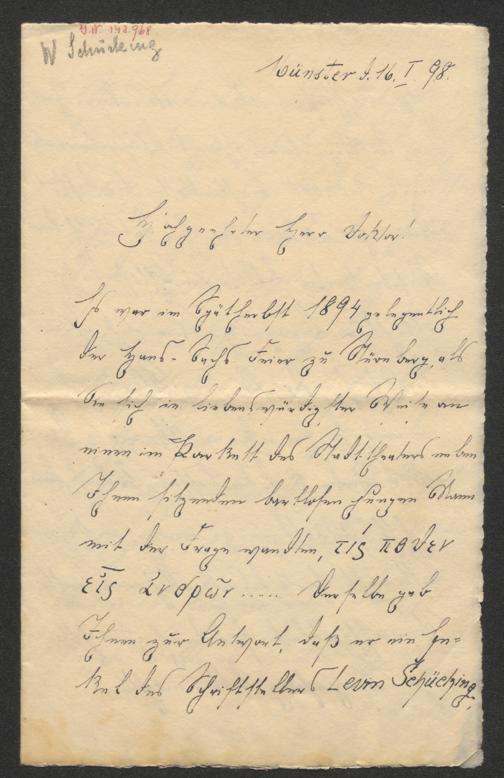 I.N. 143.968
W Schücking
Münster d. 16. I 98.
Hochgeehrter Herr Doktor!
Es war im Spätherbst 1894 gelegentlich
der Hans-Sachs Feier zu Nürnberg, als
Sie sich in liebenswürdigster Weise an
einen im Parkett des Stadttheaters neben
Ihnen sitzenden bartlosen jungen Mann
mit der Frage wandten, τίς πόθεν
εἶς ἀνδρῶν ..... Derselbe gab
Ihnen zur Antwort, daß er ein En-
kel des Schriftstellers Levin Schücking,